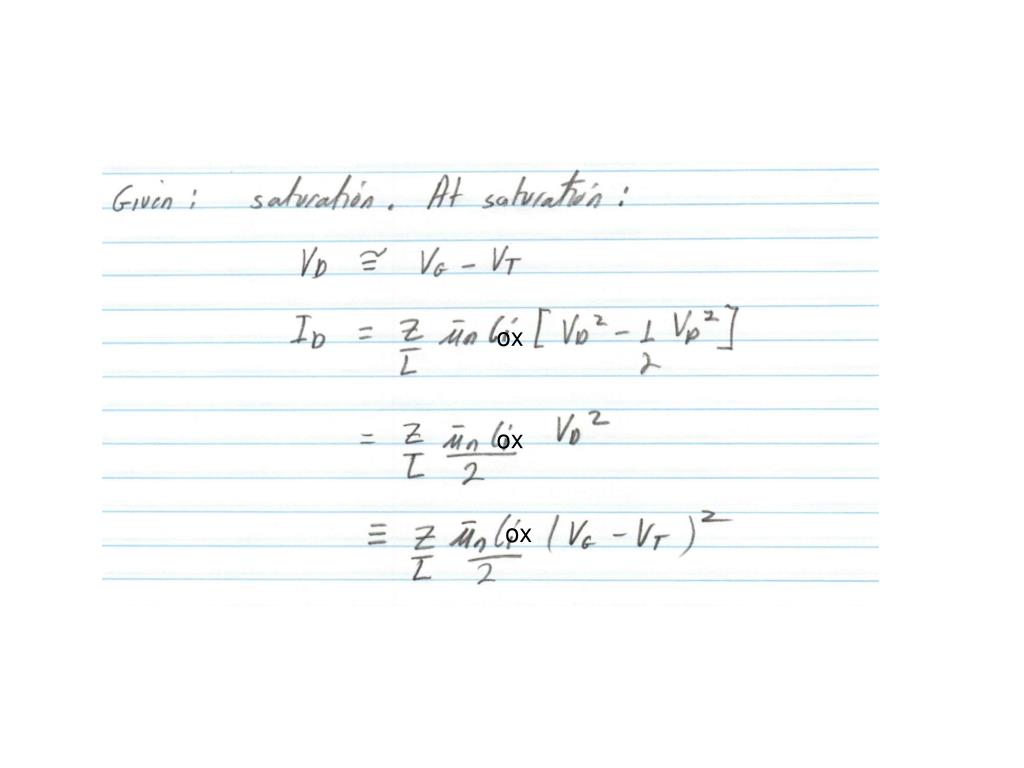 Given: saturation. At saturation:
V_D ≅ V_G − V_T
I_D = Z/L μ̄_n C_ox [V_D² − 1/2 V_D²]
= Z/L μ̄_n C_ox/2 V_D²
≡ Z/L μ̄_n C_ox/2 (V_G − V_T)²